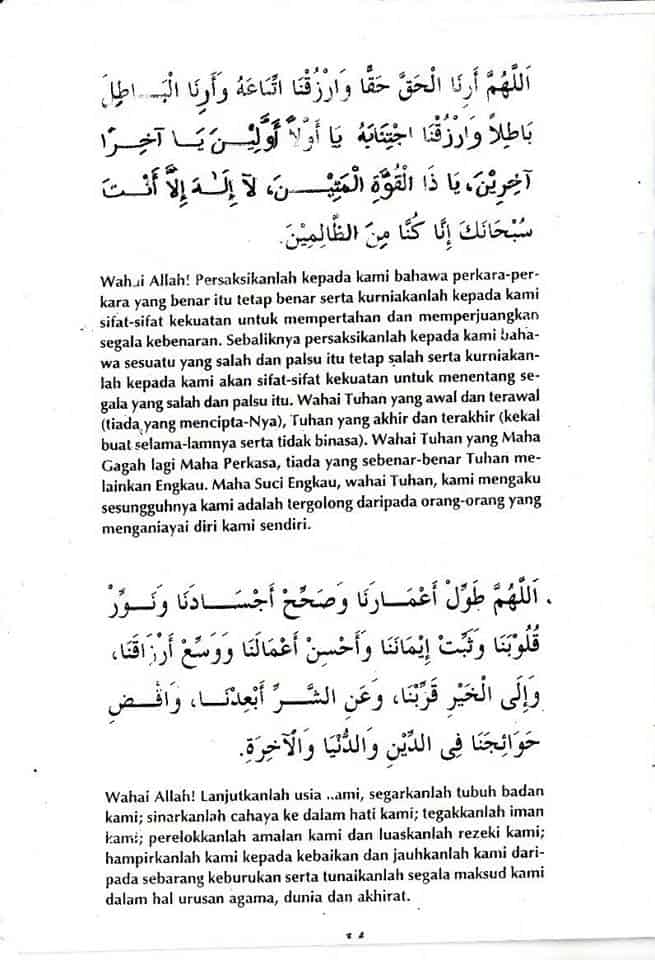 اَللَّهُمَّ أَرِنَا الْحَقَّ حَقًّا وَارْزُقْنَا اتِّبَاعَهُ وَأَرِنَا الْبَاطِلَ
بَاطِلاً وَارْزُقْنَا اجْتِنَابَهُ يَا أَوَّلاً أَوَّلِيْنَ يَا آخِرًا
آخِرِيْنَ، يَا ذَا الْقُوَّةِ الْمَتِيْنَ، لَآ إِلَهَ إِلاَّ أَنْتَ
سُبْحَانَكَ إِنَّا كُنَّا مِنَ الظَّالِمِيْنَ.
Wahai Allah! Persaksikanlah kepada kami bahawa perkara-per-
kara yang benar itu tetap benar serta kurniakanlah kepada kami
sifat-sifat kekuatan untuk mempertahan dan memperjuangkan
segala kebenaran. Sebaliknya persaksikanlah kepada kami baha-
wa sesuatu yang salah dan palsu itu tetap salah serta kurniakan-
lah kepada kami akan sifat-sifat kekuatan untuk menentang se-
gala yang salah dan palsu itu. Wahai Tuhan yang awal dan terawal
(tiada yang mencipta-Nya), Tuhan yang akhir dan terakhir (kekal
buat selama-lamnya serta tidak binasa). Wahai Tuhan yang Maha
Gagah lagi Maha Perkasa, tiada yang sebenar-benar Tuhan me-
lainkan Engkau. Maha Suci Engkau, wahai Tuhan, kami mengaku
sesungguhnya kami adalah tergolong daripada orang-orang yang
menganiayai diri kami sendiri.
اَللَّهُمَّ طَوِّلْ أَعْمَارَنَا وَصَحِّحْ أَجْسَادَنَا وَنَوِّرْ
قُلُوْبَنَا وَثَبِّتْ إِيْمَانَنَا وَأَحْسِنْ أَعْمَالَنَا وَوَسِّعْ أَرْزَاقَنَا،
وَإِلَى الْخَيْرِ قَرِّبْنَا، وَعَنِ الشَّرِّ أَبْعِدْنَا، وَاقْضِ
حَوَائِجَنَا فِى الدِّيْنِ وَالدُّنْيَا وَالْآخِرَةِ.
Wahai Allah! Lanjutkanlah usia kami, segarkanlah tubuh badan
kami; sinarkanlah cahaya ke dalam hati kami; tegakkanlah iman
kami; perelokkanlah amalan kami dan luaskanlah rezeki kami;
hampirkanlah kami kepada kebaikan dan jauhkanlah kami dari-
pada sebarang keburukan serta tunaikanlah segala maksud kami
dalam hal urusan agama, dunia dan akhirat.